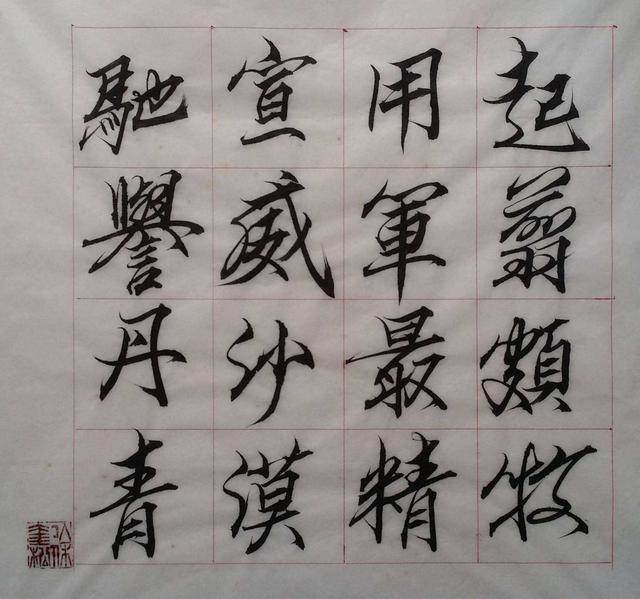 起翦頗牧
用軍最精
宣威沙漠
馳譽丹青